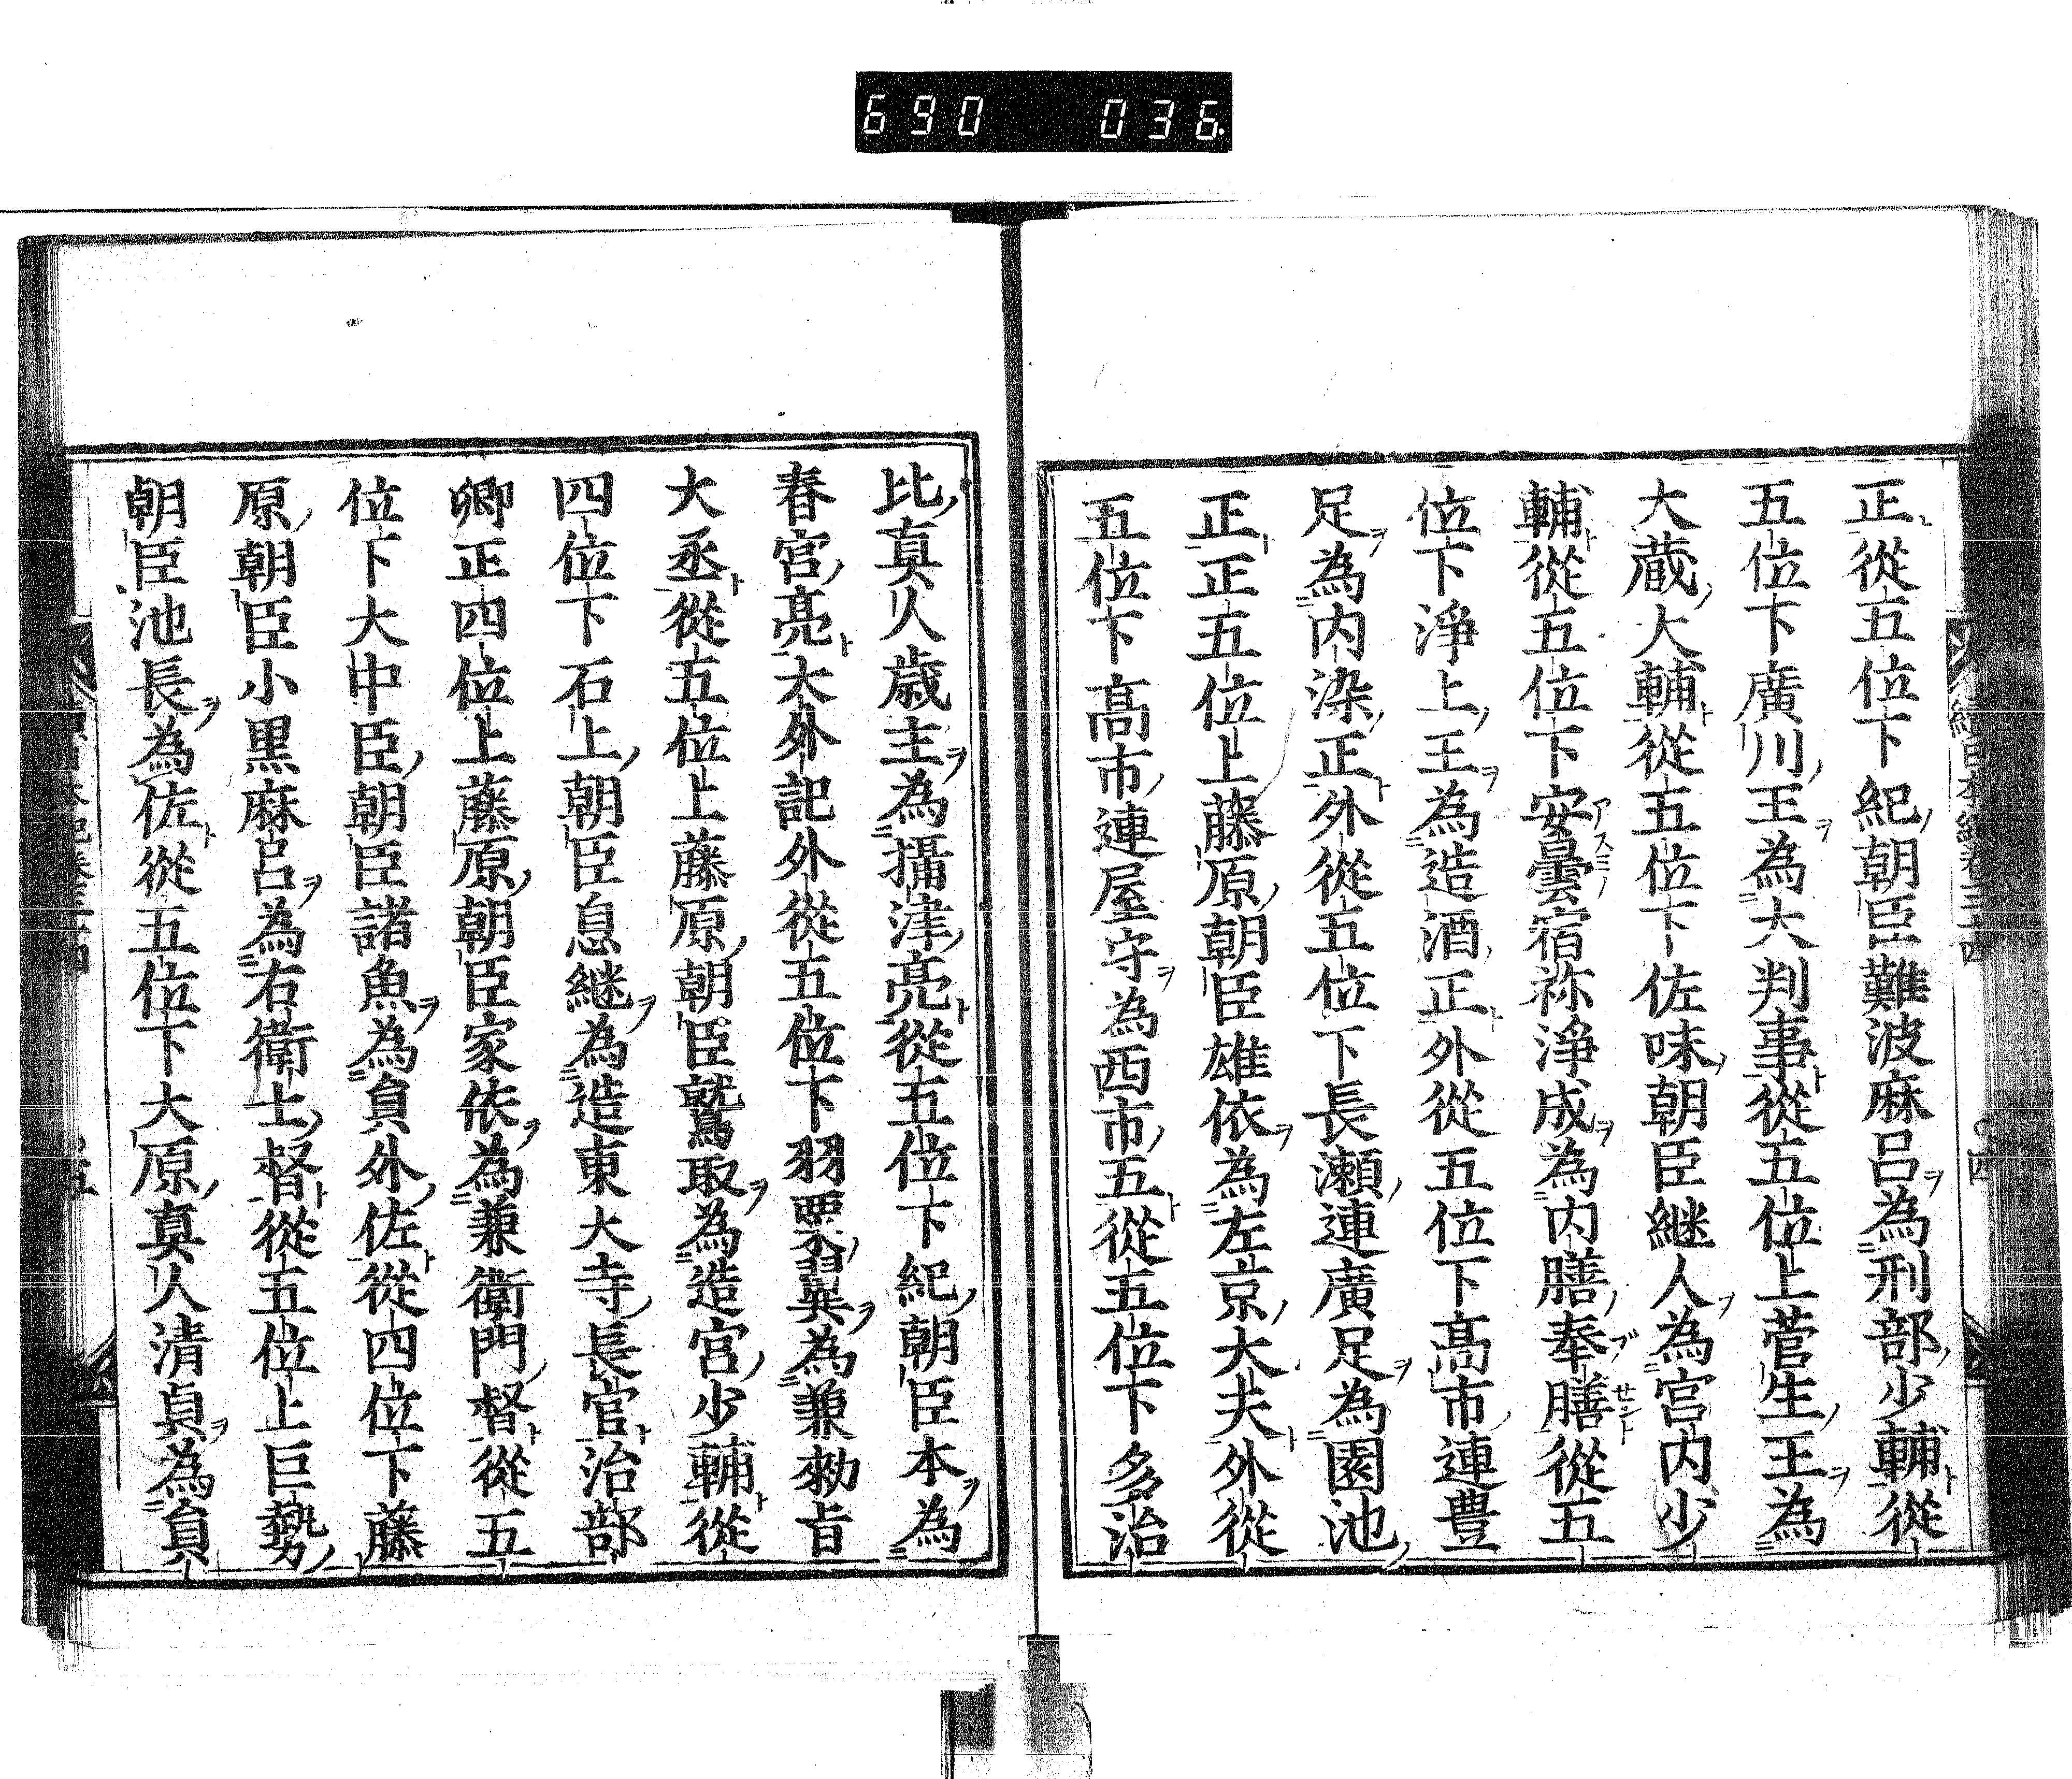 690 036
正從五位下紀朝臣難波麻呂為刑部少輔從
五位下廣川王為大判事從五位上菅生王為
大蔵大輔從五位下佐味朝臣継人為宮内少
輔從五位下安曇宿祢浄成為内膳奉膳從五
位下浄上王為造酒正外從五位下高市連豊
足為内染正外從五位下長瀬連廣足為園池
正正五位上藤原朝臣雄依為左京大夫外從
五位下高市連屋守為西市五從五位下多治
比真人歳主為攝津亮從五位下紀朝臣本為
春宮亮大外記外從五位下羽栗翼為兼勅旨
大丞從五位上藤原朝臣鷲取為造宮少輔從
四位下石上朝臣息継為造東大寺長官治部
卿正四位上藤原朝臣家依為兼衛門督從五
位下大中臣朝臣諸魚為員外佐從四位下藤
原朝臣小黒麻呂為右衛士督從五位上巨勢
朝臣池長為佐從五位下大原真人清貞為員